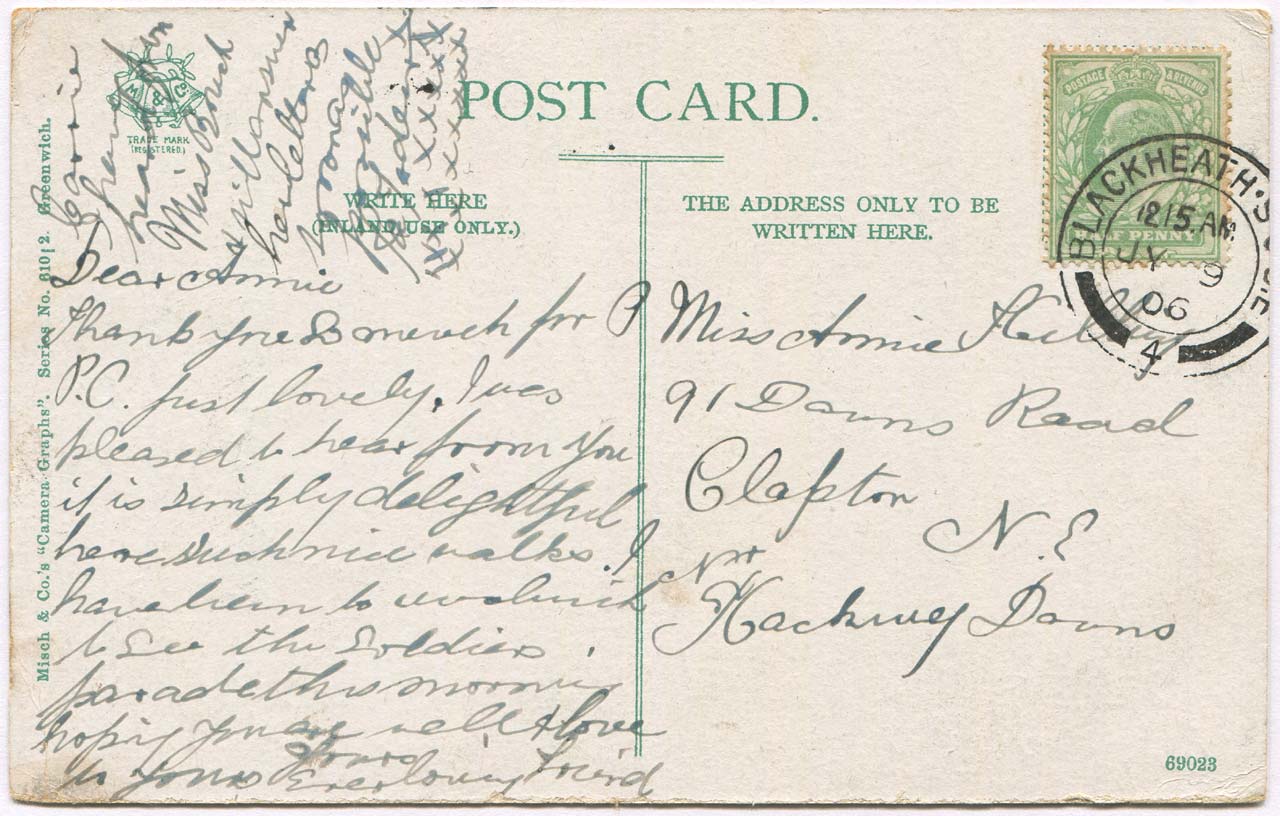 POST CARD.
M & Co.
TRADE MARK
(REGISTERED.)
WRITE HERE
(INLAND USE ONLY.)
THE ADDRESS ONLY TO BE
WRITTEN HERE.
Misch & Co.'s "Camera Graphs". Series No. 610/2. Greenwich.
POSTAGE & REVENUE
HALF PENNY
BLACKHEATH. S.O.
12.15. AM
JY 9
06
4
Dear Annie
Thank you so much for P
P.C. just lovely. I was
pleased to hear from you
it is simply delightful
here such nice walks. I
have been to woolwich
to see the soldiers
parade this morning
hoping you are well & love
to yours Yours
Ever loving friend
Connie
hear from
Miss
& will answer
her letters
as soon as
possible
x x x x x x x
x x x x x x x
Miss Annie
91 Downs Road
Clapton
N.E
Nr
Hackney Downs
69023